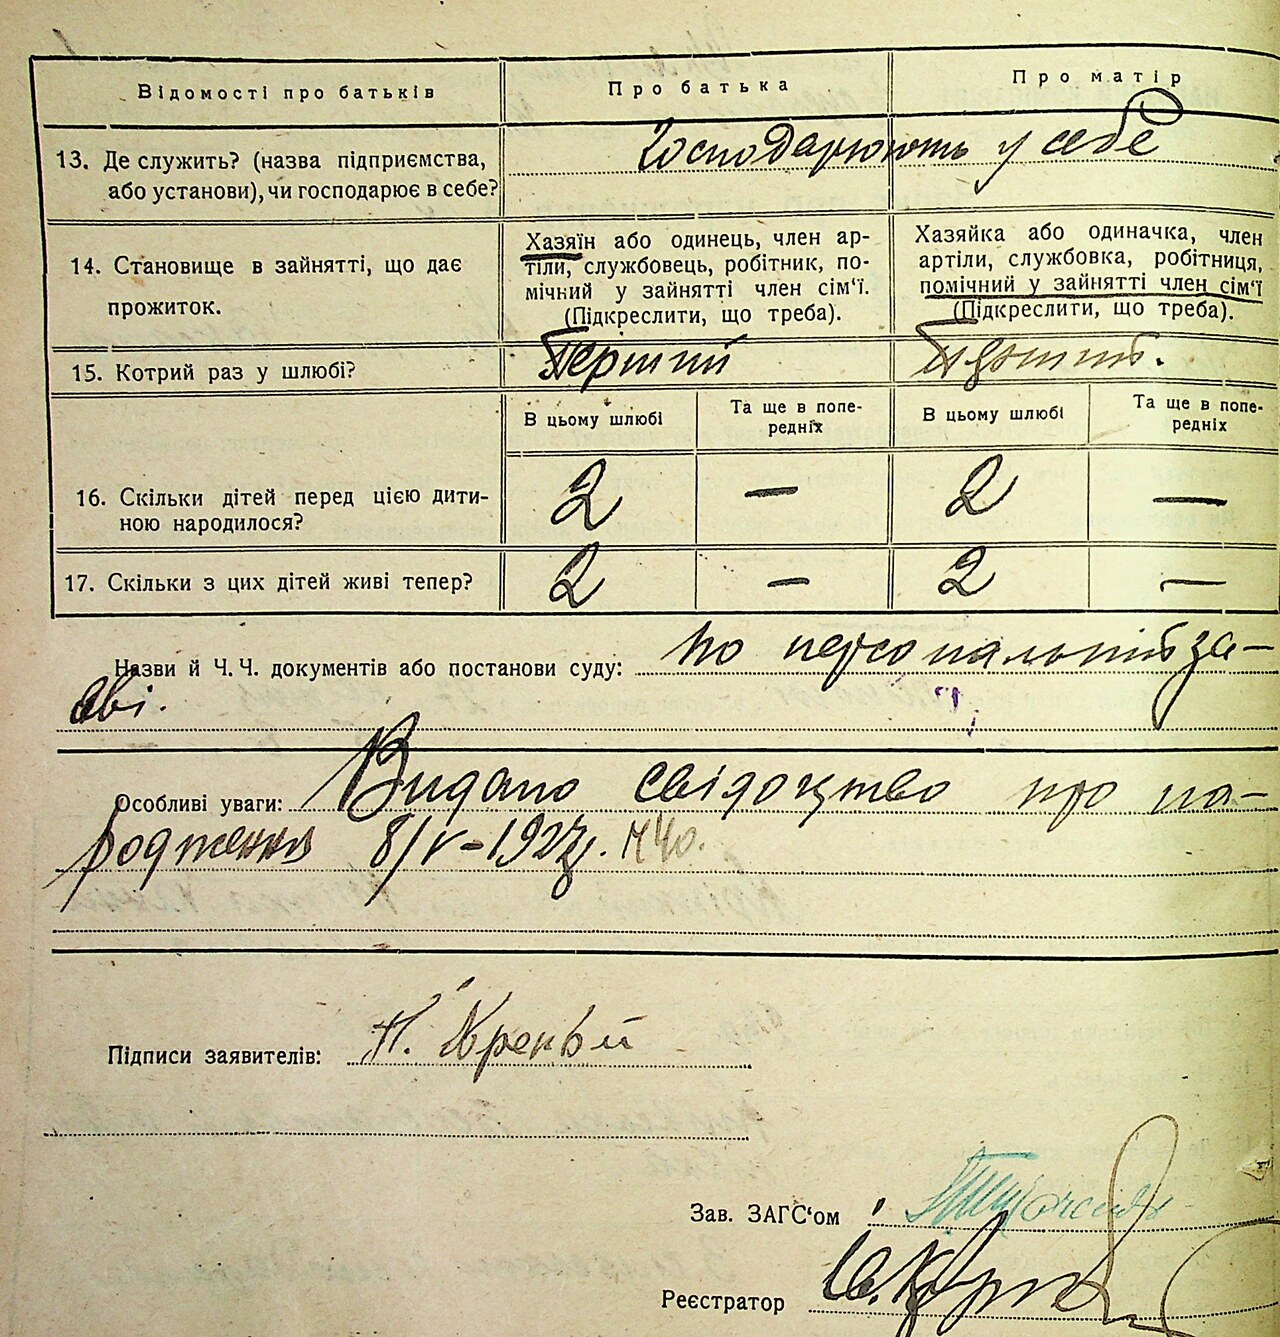 Відомості про батьків Про батька Про матір
13. Де служить? (назва підприємства, або установи), чи господарює в себе? Господарюють у себе
14. Становище в зайнятті, що дає прожиток.
Хазяїн або одинець, член ар-
тіли, службовець, робітник, по-
мічний у зайнятті член сім'ї.
(Підкреслити, що треба).
Хазяйка або одиначка, член
артіли, службовка, робітниця,
помічний у зайнятті член сім'ї
(Підкреслити, що треба).
15. Котрий раз у шлюбі? Перший
В цьому шлюбі Та ще в попе-
редніх В цьому шлюбі Та ще в попе-
редніх
16. Скільки дітей перед цією дити-
ною народилося? 2 — 2 —
17. Скільки з цих дітей живі тепер? 2 — 2 —
Назви й Ч. Ч. документів або постанови суду: по персональній за-
яві.
Особливі уваги: Видано свідоцтво про на-
родження 8/V-1927р. №40.
Підписи заявителів:
Зав. ЗАГС'ом
Реєстратор